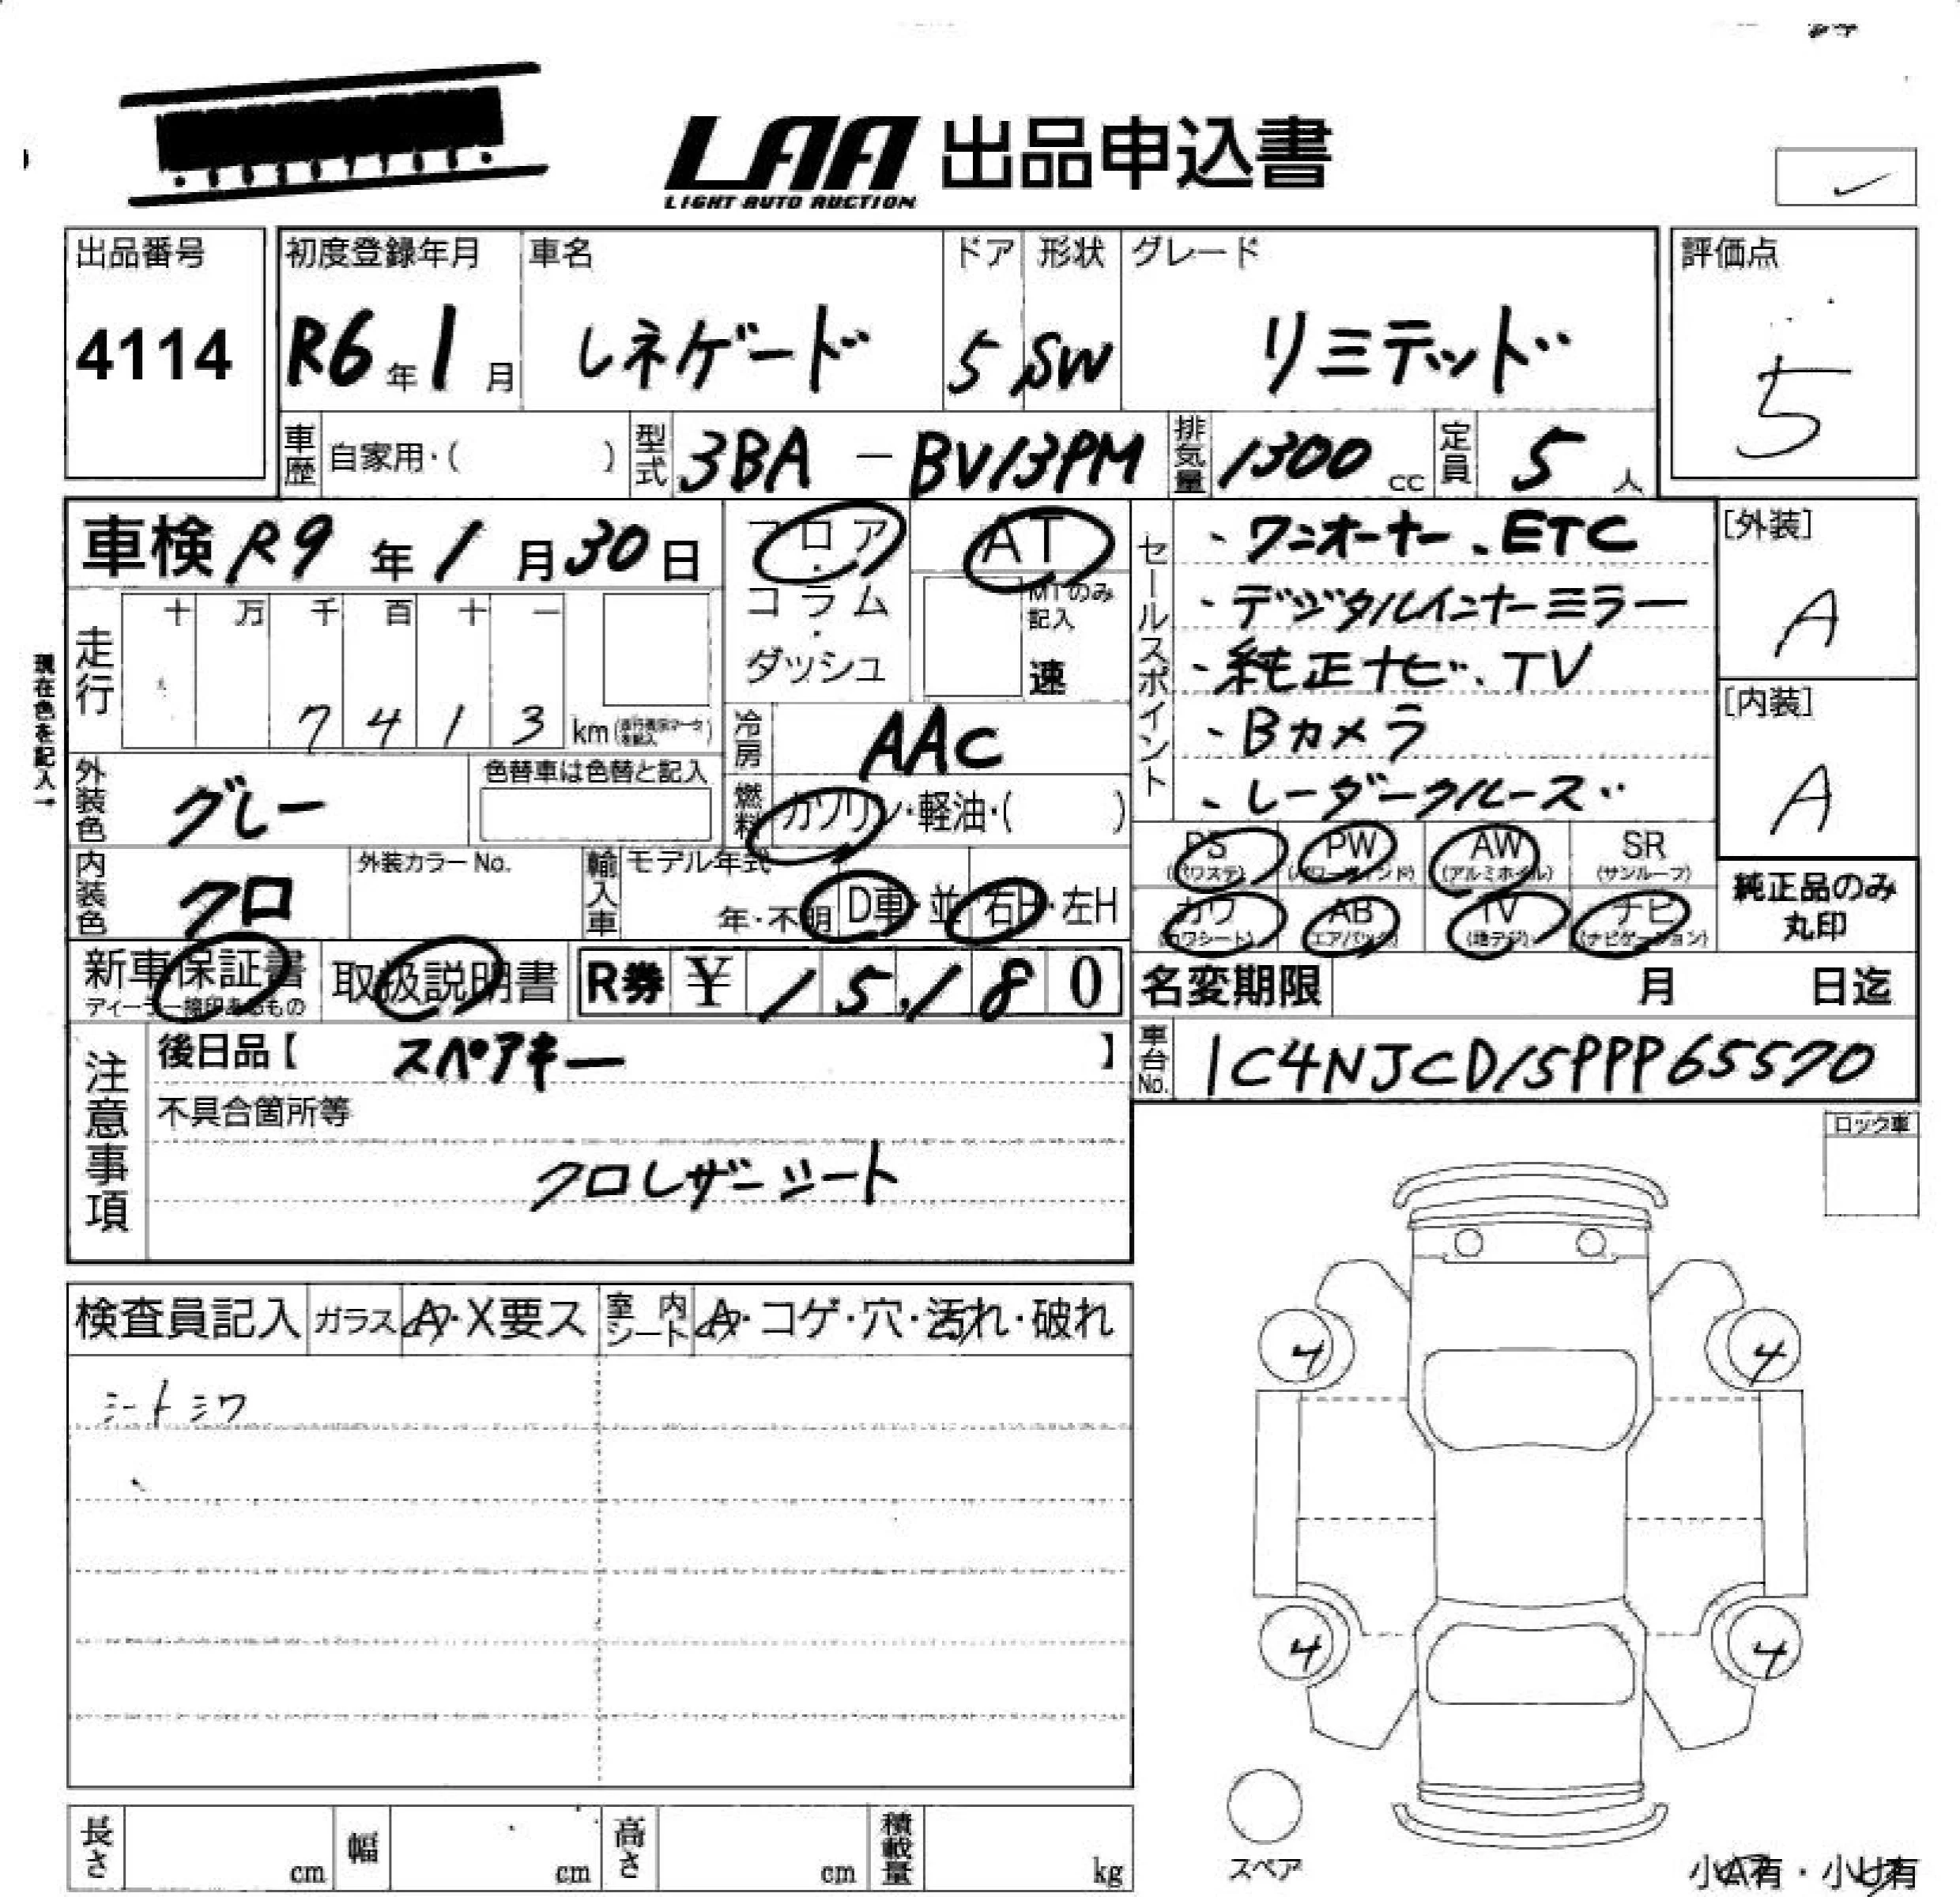 LAA 出品申込書
LIGHT AUTO AUCTION
出品番号
4114
初度登録年月
R6年1月
車名
レネゲード
ドア
5
形状
SW
グレード
リミテッド
評価点
5
車歴 自家用・( )
型式 3BA - BV13PM
排気量 1300 cc
定員 5 人
車検 R9年1月30日
フロア・コラム・ダッシュ
AT
MTのみ記入
速
セールスポイント
・ワンオーナー、ETC
・デジタルインナーミラー
・純正ナビ、TV
・Bカメラ
・レーダークルーズ
[外装]
A
[内装]
A
現在色を記入→
走行 十 万 千 百 十 一
7 4 1 3 km
冷房 AAC
外装色 グレー
色替車は色替と記入
燃料 ガソリン・軽油・( )
PS (パワステ) PW (パワーウィンド) AW (アルミホイル) SR (サンルーフ)
カワ (カワシート) AB (エアバック) TV (地デジ) ナビ (ナビゲーション)
純正品のみ
丸印
内装色 クロ
外装カラーNo.
輸入車 モデル年式
年・不明 D車・並 右H・左H
新車保証書
ディーラー捺印あるもの
取扱説明書
R券 ¥ 15,180
名変期限 月 日迄
車台No. 1C4NJCD15PPP65570
注意事項
後日品【 スペアキー 】
不具合箇所等
クロレザーシート
ロック車
検査員記入 ガラス A・X要ス 室内シート A・コゲ・穴・汚れ・破れ
シートシワ
4 4
4 4
スペア
長さ cm 幅 cm 高さ cm 積載量 kg
小A有・小U有